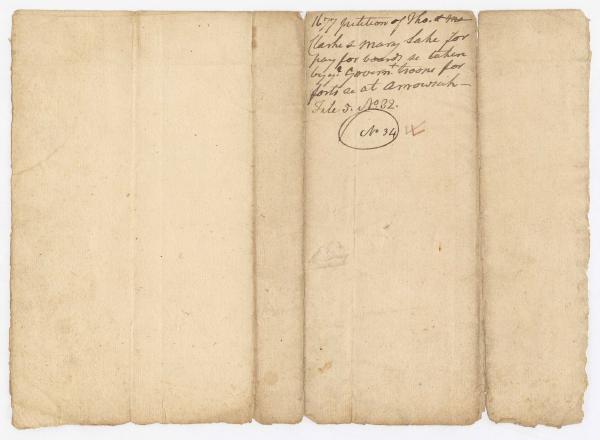 1677 petition of Tho. &
Clarke & Mary Lake for
pay for boards &c taken
by ye Governt. troops for
forts &c at Arrowsick—
File 3. No 32.
No 34